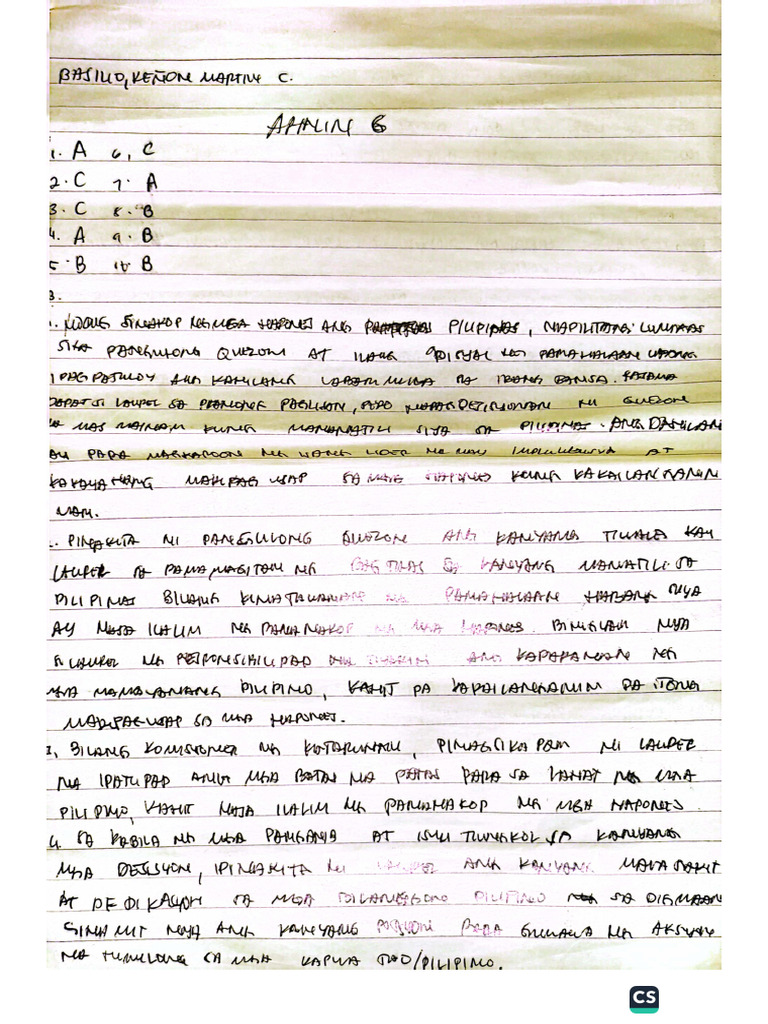 BASILIO, KEÑON MARTIN C.
6
1. A 6. C
2. C 7. A
3. C 8. B
4. A 9. B
5. B 10. B
B.
1. NOONG SINAKOP NG MGA HAPONES ANG PILIPINAS, NAPILITANG LUMIKAS
SINA PANGULONG QUEZON AT ILANG OPISYAL NG PAMAHALAAN UPANG
IPAGPATULOY ANG KANILANG SA IBANG BANSA.
DAPAT SI LAUREL SA PLANONG PAGLIKAS, PERO NI QUEZON
NA MAS MAINAM KUNG MANANATILI SIYA SA PILIPINAS. ANG DAHILAN
AY PARA MAGKAROON NG ISANG LIDER NA MAY IMPLUWENSYA AT
KAKAYAHANG MAKIPAG USAP SA MGA HAPONES KUNG KAKAILANGANIN
MAN.
2. PINAKITA NI PANGULONG QUEZON ANG KANIYANG TIWALA KAY
LAUREL SA PAMAMAGITAN NG SA KANYANG MANATILI SA
PILIPINAS BILANG KINATAWAN NG PAMAHALAAN
AY NASA ILALIM NG PANANAKOP NG MGA HAPONES. BINIGYAN NIYA
SI LAUREL NG RESPONSIBILIDAD NA ANG KAPAKANAN NG
MGA MAMAMAYANG PILIPINO, KAHIT PA KAKAILANGANIN PA ITONG
MAKIPAGUSAP SA MGA HAPONES.
3. BILANG KOMISYONER NG KATARUNGAN, PINAGSIKAPAN NI LAUREL
NA IPATUPAD ANG MGA BATAS NA PATAS PARA SA LAHAT NG MGA
PILIPINO, KAHIT NASA ILALIM NG PANANAKOP NG MGA HAPONES
4. SA KABILA NG MGA PANGANIB AT ISYU TUNGKOL SA KANIYANG
MGA DESISYON, IPINAKITA NI LAUREL ANG KANIYANG MALASAKIT
AT DEDIKASYON SA MGA PILIPINO SA DIGMAAN
GINAMIT NIYA ANG KANIYANG POSISYON PARA GUMAWA NG AKSYON
NA TUMULONG SA MGA KAPWA TAO/PILIPINO.
CS